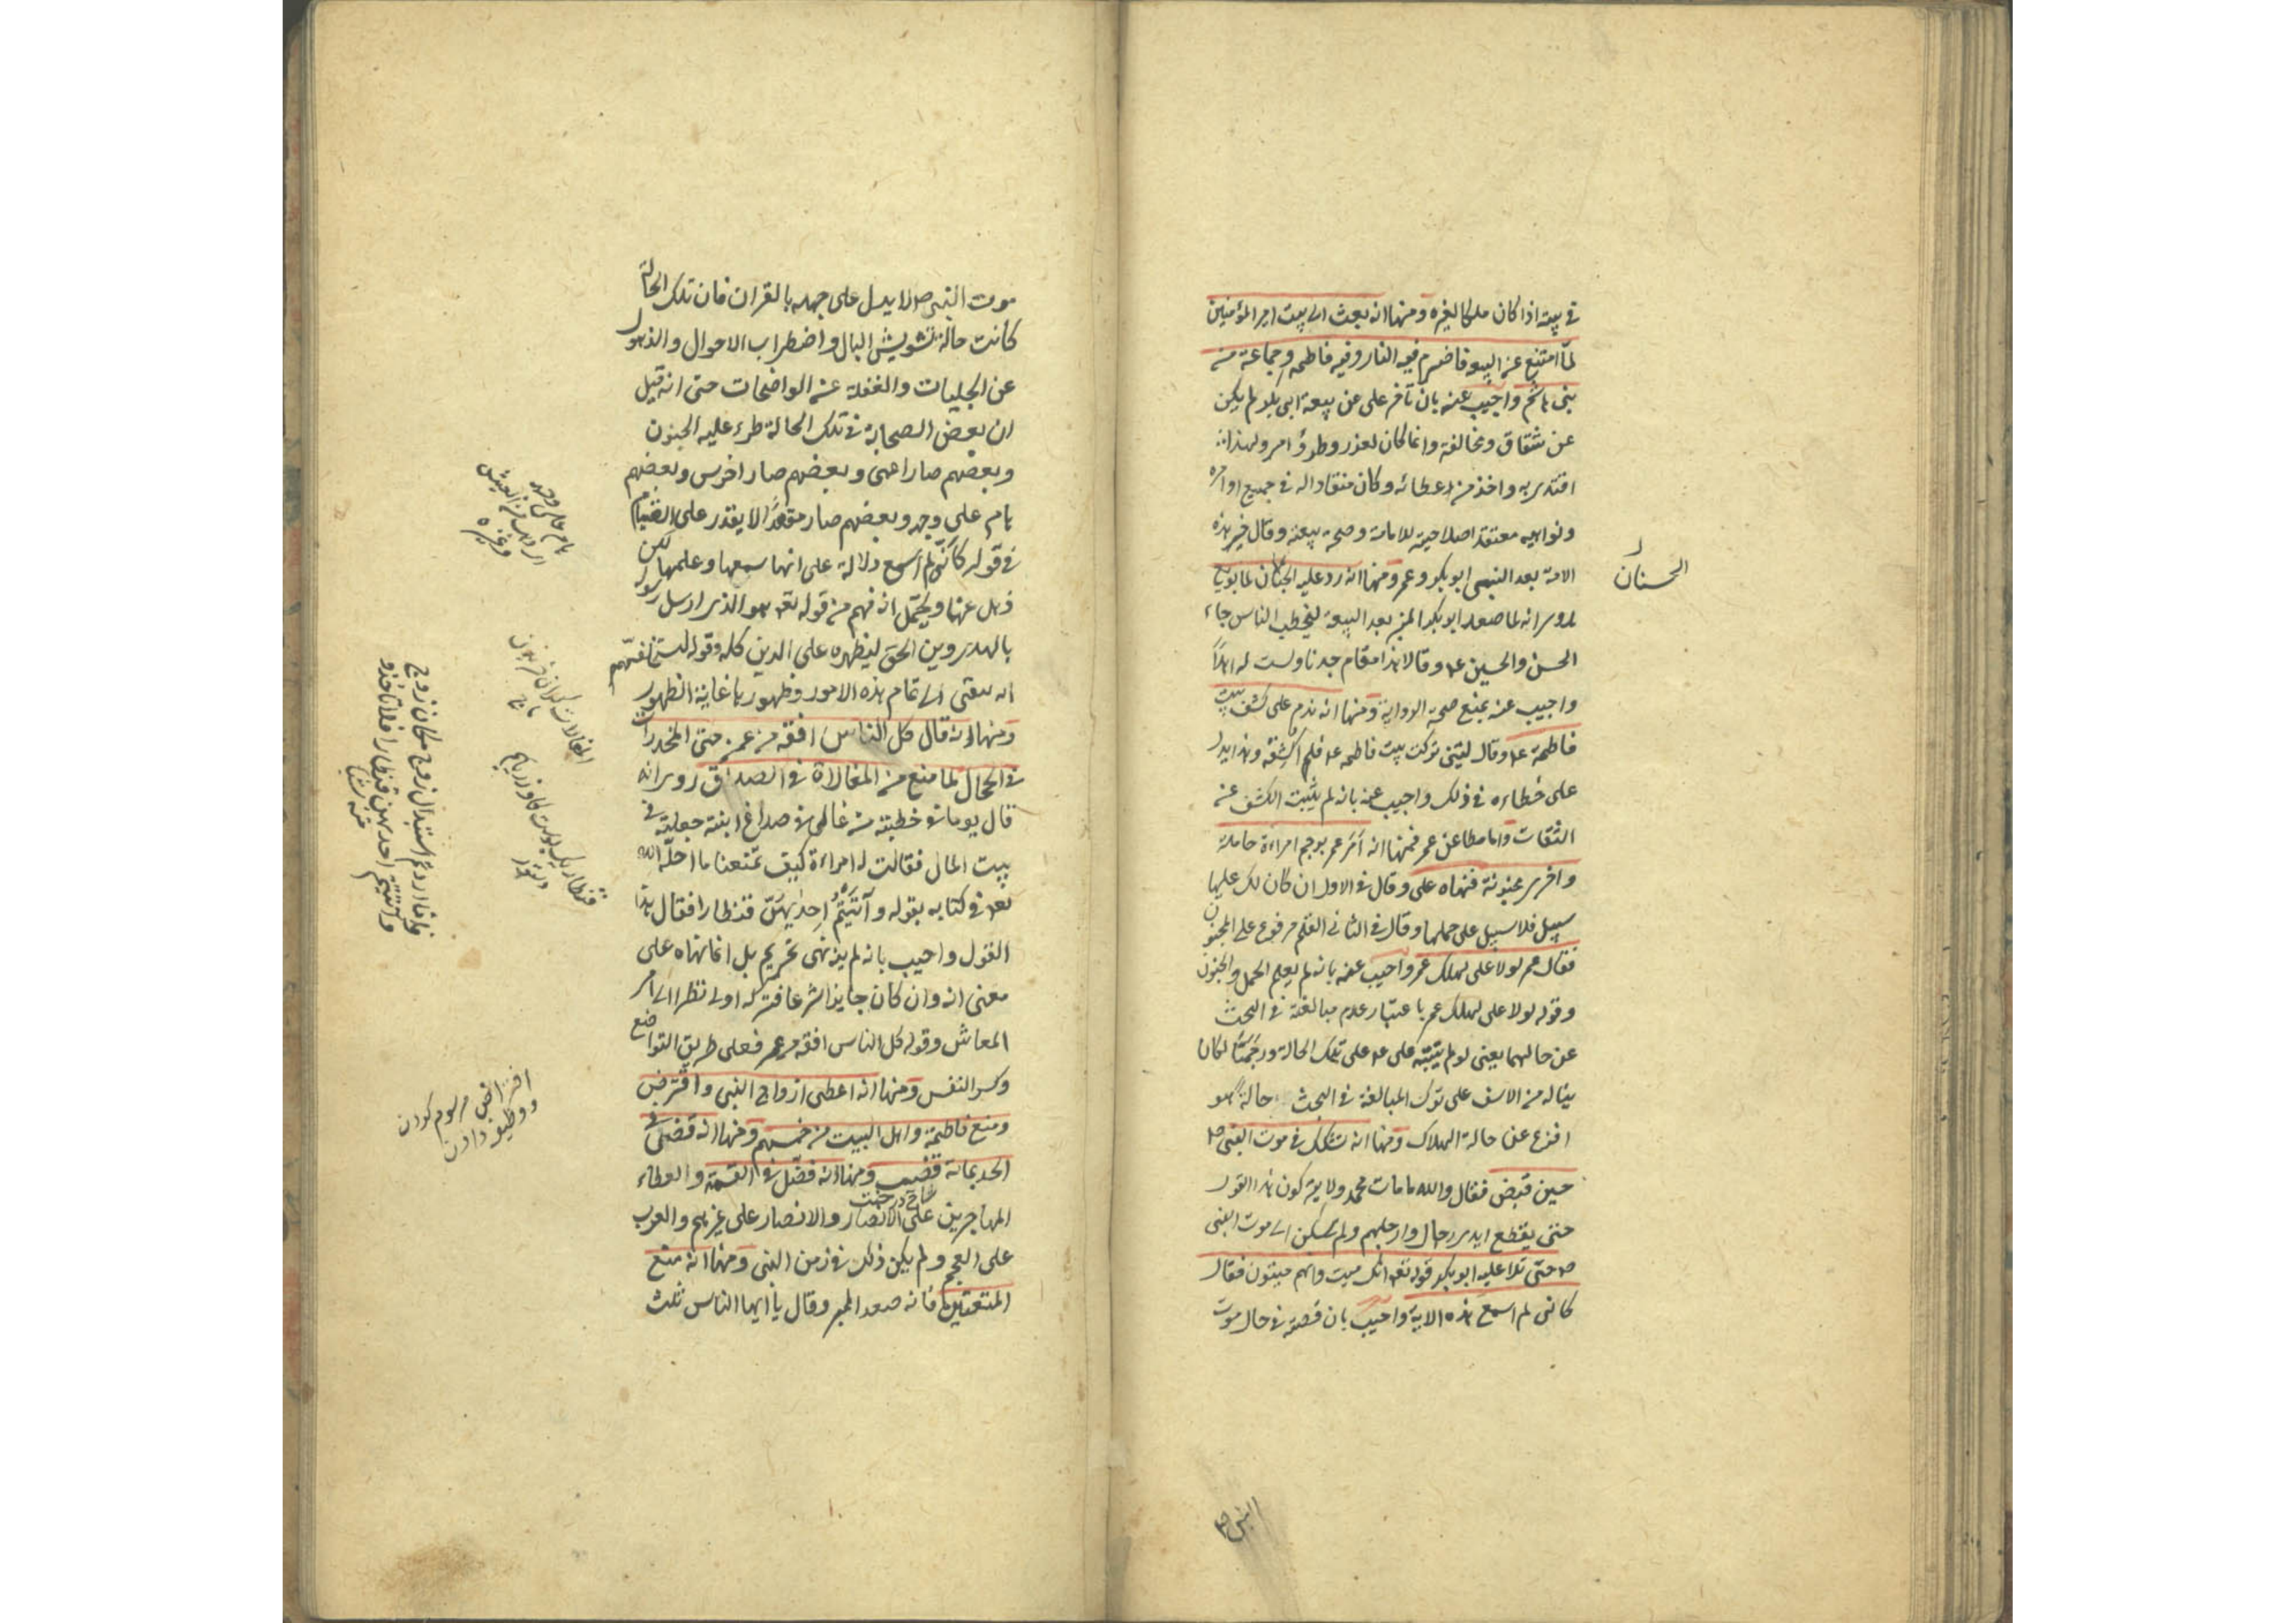 في بيته اذا كان ملكا لغيره ومنها انه بعث الى بيت امير المؤمنين
لما امتنع عن البيعة فاضرم فيه النار وفيه فاطمة وجماعة من
بنى هاشم واجيب عنه بان تأخر على عن بيعة ابى بكر لم يكن
عن شقاق ومخالفة وانما كان لعذر وطرؤ امر ولهذا
اقتدى به واخذ من اعطائه وكان منقادا له في جميع اوامره
ونواهيه معتقدا صلاحيته للامامة وصحة بيعته وقال خير هذه
الامة بعد النبى ابو بكر وعمر ومنها انه رد عليه الحسنان لما بويع
الحسنان
روى انه لما صعد ابو بكر المنبر بعد البيعة ليخطب الناس جاء
الحسن والحسين ع وقالا هذا مقام جدنا ولست له اهلا
واجيب عنه بمنع صحة الرواية ومنها انه ندم على كشف بيت
فاطمة ع وقال ليتنى تركت بيت فاطمة ع فلم اكشفه وهذا يدل
على خطاءه في ذلك واجيب عنه بانه لم يثبت الكشف عن
الثقات واما مطاعن عمر فمنها انه أمَرَ عمر برجم امراءة حاملة
واخرى مجنونة فنهاه على وقال في الاول ان كان لك عليها
سبيل فلا سبيل على حملها وقال في الثانى القلم مرفوع على المجنون
فقال عمر لولا على لهلك عمر واجيب عنه بانه لم يعلم الحمل والجنون
وقوله لولا على لهلك عمر باعتبار عدم مبالغته في البحث
عن حالهما يعنى لو لم ينبّه على ع على تلك الحالة ورجمتا لكان
يناله من الاسف على ترك المبالغة في البحث حالة هو
افزع عن حالة الهلاك ومنها انه تشكك في موت النبى ص
حين قبض فقال والله ما مات محمد ولا يتركون هذا القول
حتى يقطع ايدى رجال وارجلهم ولم يسكن الى موت النبى
ص حتى تلا عليه ابو بكر قوله تعه انك ميت وانهم ميتون فقال
كانى لم اسمع هذه الاية واجيب بان قصته في حال موت
النبى ص
موت النبى ص لا يدل على جهله بالقران فان تلك الحالة
كانت حالة تشويش البال واضطراب الاحوال والذهول
عن الجليات والغفلة عن الواضحات حتى انه قيل
ان بعض الصحابة في تلك الحالة طرء عليه الجنون
وبعضهم صار اعمى وبعضهم صار اخرس وبعضهم
هام على وجهه وبعضهم صار مقعدًا لا يقدر على القيام
في قوله كأنّى لم اسمع دلالة على انها سمعها وعلمها لكن
ذهل عنها ويحتمل انه فهم من قوله تعه هو الذى ارسل رسوله
بالهدى ودين الحق ليظهره على الدين كله وقوله ليستخلفنّهم
انه يبقى الى تمام هذه الامور وظهورها غاية الظهور
ومنها انه قال كل الناس افقه من عمر حتى المخدرات
في الحجال لما منع من المغالاة في الصداق روى انه
قال يوما في خطبته من غالى في صداق ابنته جعلته في
بيت المال فقالت له امراءة كيف تمنعنا ما احلّه الله
تعه في كتابه بقوله وآتيتم احديهنّ قنطارا فقال هذا
القول واجيب بانه لم ينه نهى تحريم بل انما نهاه على
معنى انه وان كان جايزا شرعا فتركه اولى نظرا الى امر
المعاش وقوله كل الناس افقه من عمر فعلى طريق التواضع
وكسر النفس ومنها انه اعطى ازواج النبى واقترض
ومنع فاطمة واهل البيت من خمسهم ومنها انه قضى في
الحد بمائة قضيب ومنها انه فضّل في القسمة والعطاء
شاخ درخت
المهاجرين على الانصار والانصار على غيرهم والعرب
على العجم ولم يكن ذلك في زمن النبى ومنها انه منع
المتعتين فانه صعد المنبر وقال يا ايها الناس ثلث
هام على وجهه
وغيره
وان اردتم استبدال زوج مكان زوج
وآتيتم احديهن قنطارا فلا تأخذو
منه شيئا